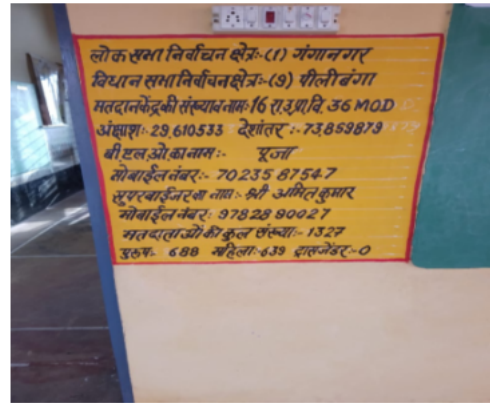 लोक सभा निर्वाचन क्षेत्रः-(1) गंगानगर
विधान सभा निर्वाचन क्षेत्रः-(9) पीलीबंगा
मतदान केंद्र की संख्या व नामः 16 रा.उ.प्रा.वि. 36 MOD
अंक्षाशः- 29.610533 देशांतर :- 73.859879
बी.एल.ओ. का नाम :- पूजा
मोबाईल नंबर :- 7023587547
सुपरवाईजर का नाम :- श्री अमित कुमार
मोबाईल नंबर : 9782890027
मतदाताओं की कुल संख्या :- 1327
पुरूष:- 688 महिला:-639 ट्रासजेंडर:-0